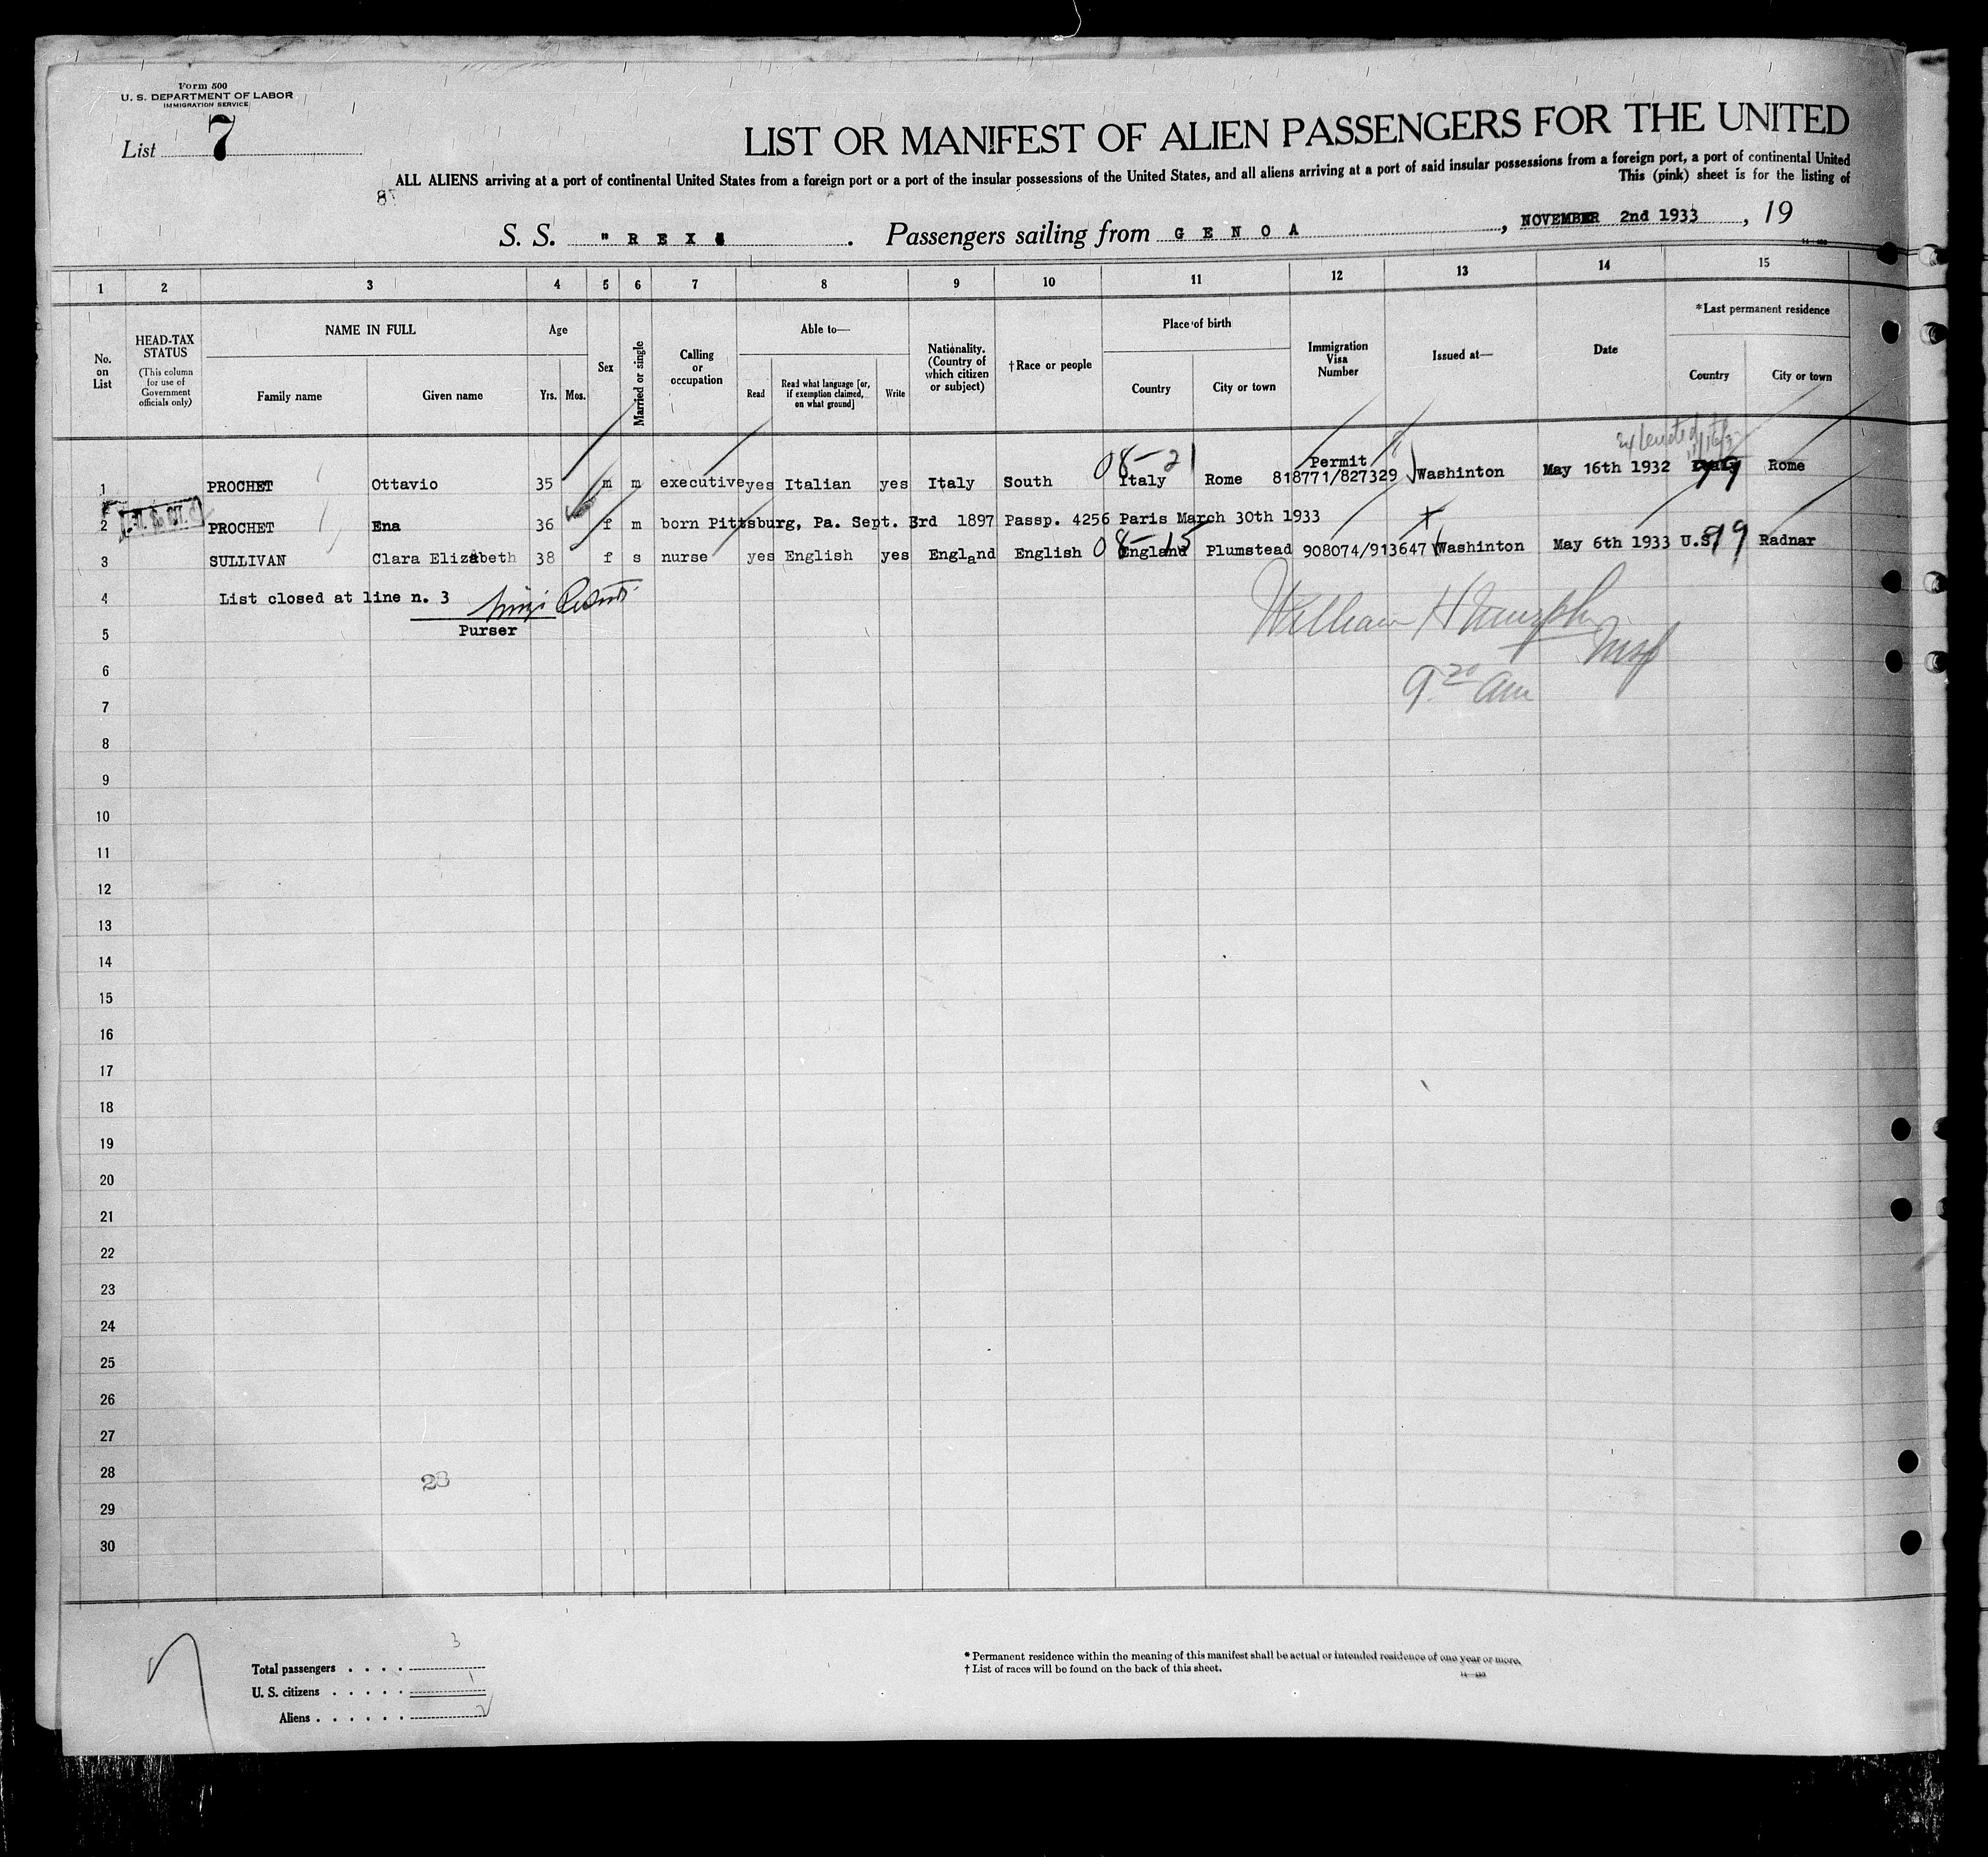 Form 500
U. S. DEPARTMENT OF LABOR
IMMIGRATION SERVICE
List 7
LIST OR MANIFEST OF ALIEN PASSENGERS FOR THE UNITED
ALL ALIENS arriving at a port of continental United States from a foreign port or a port of the insular possessions of the United States, and all aliens arriving at a port of said insular possessions from a foreign port, a port of continental United
This (pink) sheet is for the listing of
S. S. "REX" . Passengers sailing from GENOA , NOVEMBER 2nd 1933 , 19
1 2 3 4 5 6 7 8 9 10 11 12 13 14 15
No. on List
HEAD-TAX STATUS
(This column for use of Government officials only)
NAME IN FULL
Family name Given name
Age
Yrs. Mos.
Sex
Married or single
Calling or occupation
Able to—
Read Read what language [or, if exemption claimed, on what ground] Write
Nationality. (Country of which citizen or subject)
†Race or people
Place of birth
Country City or town
Immigration Visa Number
Issued at—
Date
*Last permanent residence
Country City or town
08-21 Permit
1 PROCHET Ottavio 35 m m executive yes Italian yes Italy South Italy Rome 818771/827329 Washinton May 16th 1932 Italy 99 Rome
2 PROCHET Ena 36 f m born Pittsburg, Pa. Sept. 3rd 1897 Passp. 4256 Paris March 30th 1933
08-15
3 SULLIVAN Clara Elizabeth 38 f s nurse yes English yes England English England Plumstead 908074/913647 Washinton May 6th 1933 U.S. 99 Radnar
4 List closed at line n. 3
Purser
William H Murphy
Insp
9 20 am
5
6
7
8
9
10
11
12
13
14
15
16
17
18
19
20
21
22
23
24
25
26
27
28
29
30
23
Total passengers . . . . 3
U. S. citizens . . . . . 1
Aliens . . . . . . 2
* Permanent residence within the meaning of this manifest shall be actual or intended residence of one year or more.
† List of races will be found on the back of this sheet.